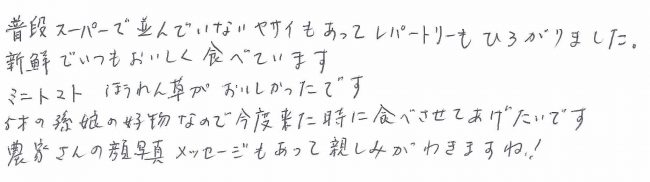 普段スーパーで並んでいないヤサイもあってレパートリーもひろがりました。
新鮮でいつもおいしく食べています
ミニトマト ほうれん草が おいしかったです
5才の孫娘の好物なので今度来た時に食べさせてあげたいです
農家さんの顔写真 メッセージもあって親しみがわきますね!!